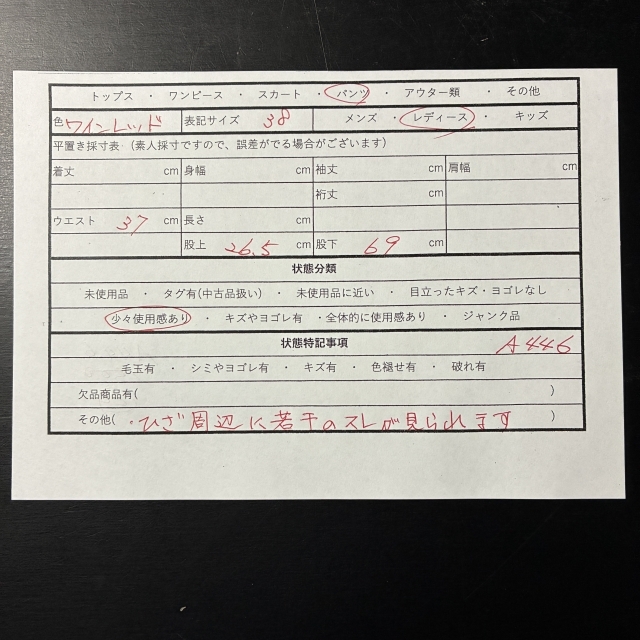 トップス ・ ワンピース ・ スカート ・ パンツ ・ アウター類 ・ その他
色 ワインレッド 表記サイズ 38 メンズ ・ レディース ・ キッズ
平置き採寸表 (素人採寸ですので、誤差がでる場合がございます)
着丈 cm 身幅 cm 袖丈 cm 肩幅 cm
裄丈 cm
ウエスト 37 cm 長さ cm
股上 26.5 cm 股下 69 cm
状態分類
未使用品 ・ タグ有(中古品扱い) ・ 未使用品に近い ・ 目立ったキズ・ヨゴレなし
・ 少々使用感あり ・ キズやヨゴレ有 ・全体的に使用感あり ・ ジャンク品
状態特記事項 A446
毛玉有 ・ シミやヨゴレ有 ・ キズ有 ・ 色褪せ有 ・ 破れ有
欠品商品有( )
その他( ・ひざ周辺に若干のスレが見られます )